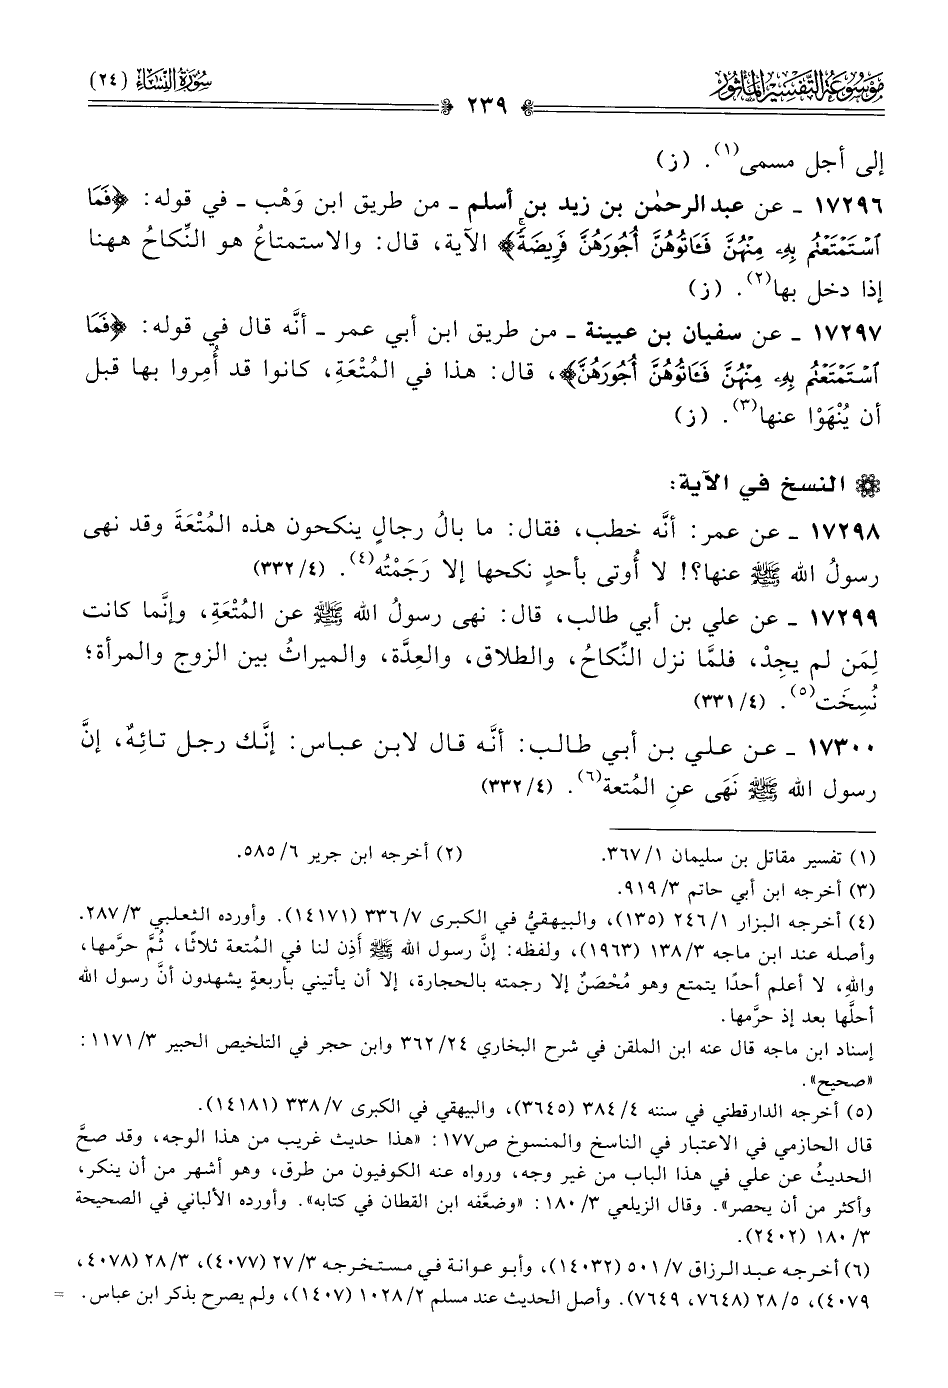 موسوعة التفسير المأثور
سورة النساء (٢٤)
٢٣٩
إلى أجل مسمى(١). (ز)
١٧٢٩٦ ـ عن عبد الرحمٰن بن زيد بن أسلم ـ من طريق ابن وَهْب ـ في قوله: ﴿فَمَا
ٱسْتَمْتَعْتُم بِهِۦ مِنْهُنَّ فَـَٔاتُوهُنَّ أُجُورَهُنَّ فَرِيضَةً﴾ الآية، قال: والاستمتاعُ هو النِّكاحُ ههنا
إذا دخل بها(٢). (ز)
١٧٢٩٧ ـ عن سفيان بن عيينة ـ من طريق ابن أبي عمر ـ أنَّه قال في قوله: ﴿فَمَا
ٱسْتَمْتَعْتُم بِهِۦ مِنْهُنَّ فَـَٔاتُوهُنَّ أُجُورَهُنَّ﴾، قال: هذا في المُتْعَةِ، كانوا قد أُمِروا بها قبل
أن يُنْهَوْا عنها(٣). (ز)
النسخ في الآية:
١٧٢٩٨ ـ عن عمر: أنَّه خطب، فقال: ما بالُ رجالٍ ينكحون هذه المُتْعَةَ وقد نهى
رسولُ الله ﷺ عنها؟! لا أُوتى بأحدٍ نكحها إلا رَجَمْتُه(٤). (٣٣٢/٤)
١٧٢٩٩ ـ عن علي بن أبي طالب، قال: نهى رسولُ الله ﷺ عن المُتْعَةِ، وإنَّما كانت
لِمَن لم يجِدْ، فلمَّا نزل النِّكاحُ، والطلاق، والعِدَّة، والميراثُ بين الزوج والمرأة؛
نُسِخَت(٥). (٣٣١/٤)
١٧٣٠٠ ـ عن علي بن أبي طالب: أنَّه قال لابن عباس: إنَّك رجل تائِهٌ، إنَّ
رسول الله ﷺ نَهَى عنِ المُتعة(٦). (٣٣٢/٤)
(١) تفسير مقاتل بن سليمان ٣٦٧/١. (٢) أخرجه ابن جرير ٥٨٥/٦.
(٣) أخرجه ابن أبي حاتم ٩١٩/٣.
(٤) أخرجه البزار ٢٤٦/١ (١٣٥)، والبيهقيُّ في الكبرى ٣٣٦/٧ (١٤١٧١). وأورده الثعلبي ٢٨٧/٣.
وأصله عند ابن ماجه ١٣٨/٣ (١٩٦٣)، ولفظه: إنَّ رسول الله ﷺ أَذِن لنا في المُتعة ثلاثًا، ثُمَّ حرَّمها،
واللهِ، لا أعلم أحدًا يتمتع وهو مُحْصَنٌ إلا رجمته بالحجارة، إلا أن يأتيني بأربعةٍ يشهدون أنَّ رسول الله
أحلَّها بعد إذ حرَّمها.
إسناد ابن ماجه قال عنه ابن الملقن في شرح البخاري ٣٦٢/٢٤ وابن حجر في التلخيص الحبير ١١٧١/٣:
«صحيح».
(٥) أخرجه الدارقطني في سننه ٣٨٤/٤ (٣٦٤٥)، والبيهقي في الكبرى ٣٣٨/٧ (١٤١٨١).
قال الحازمي في الاعتبار في الناسخ والمنسوخ ص١٧٧: «هذا حديث غريب من هذا الوجه، وقد صحَّ
الحديثُ عن علي في هذا الباب من غير وجه، ورواه عنه الكوفيون من طرق، وهو أشهر من أن ينكر،
وأكثر من أن يحصر». وقال الزيلعي ١٨٠/٣: «وضعَّفه ابن القطان في كتابه». وأورده الألباني في الصحيحة
١٨٠/٣ (٢٤٠٢).
(٦) أخرجه عبد الرزاق ٥٠١/٧ (١٤٠٣٢)، وأبو عوانة في مستخرجه ٢٧/٣ (٤٠٧٧)، ٢٨/٣ (٤٠٧٨،
٤٠٧٩)، ٢٨/٥ (٧٦٤٨، ٧٦٤٩). وأصل الحديث عند مسلم ١٠٢٨/٢ (١٤٠٧)، ولم يصرح بذكر ابن عباس. =